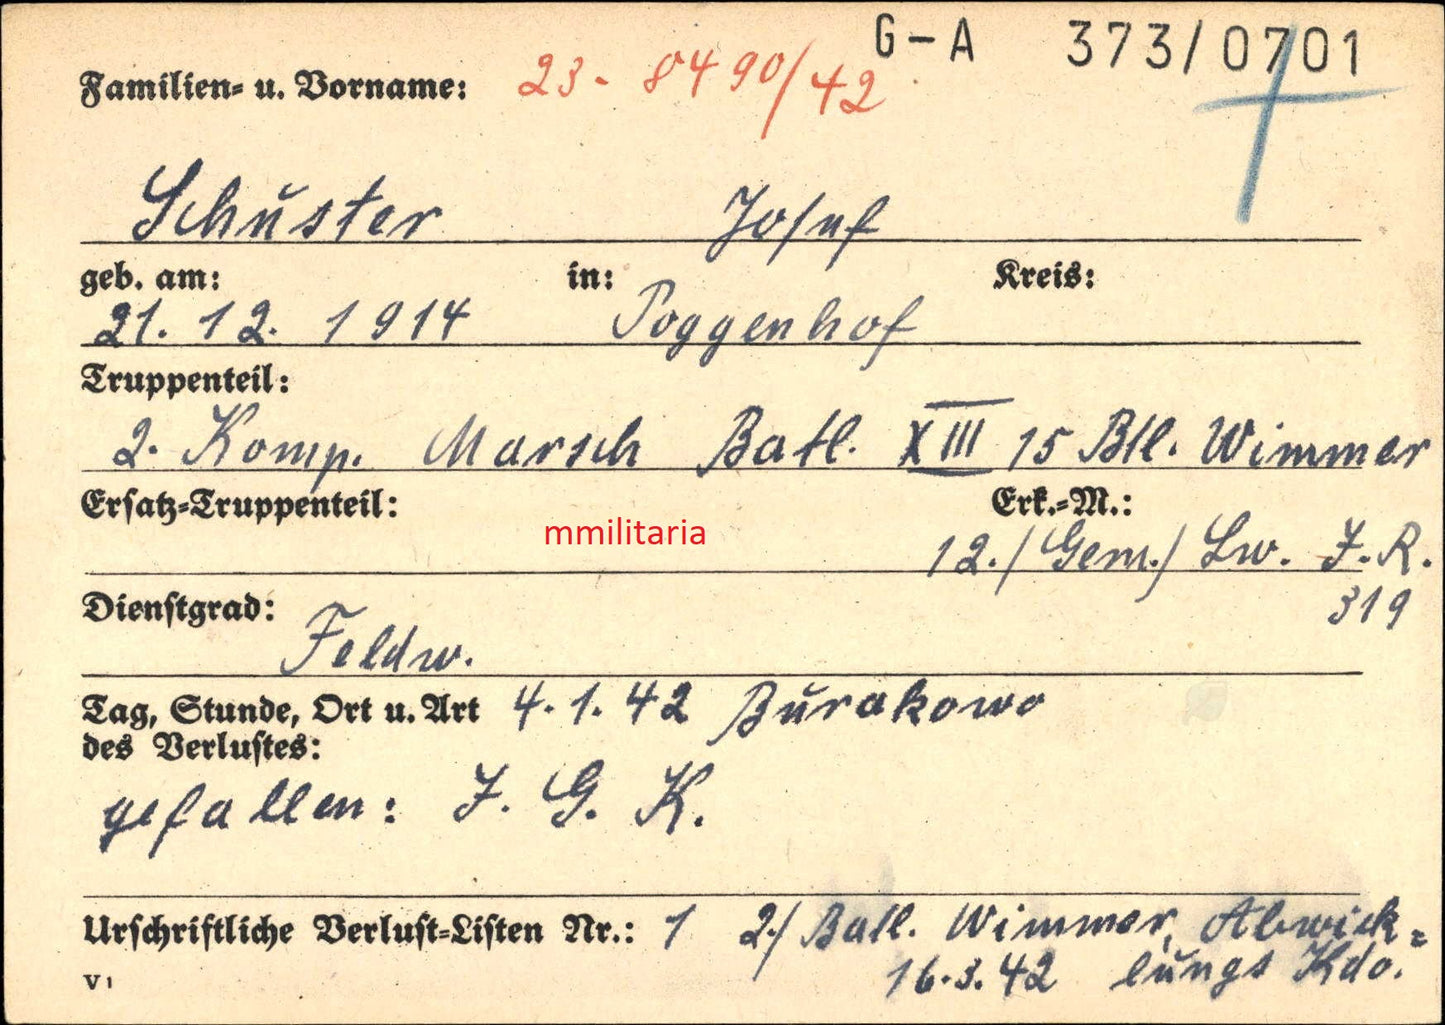 G-A 373/0701
Familien- u. Vorname: 23- 8490/42
Schuster Josef
geb. am: in: Kreis:
21. 12. 1914 Poggenhof
Truppenteil:
2. Komp. Marsch Batl. XIII 15 Btl. Wimmer
Ersatz-Truppenteil: Erk.-M.:
mmilitaria
12./Gem./ Lw. J.R.
319
Dienstgrad:
Feldw.
Tag, Stunde, Ort u. Art 4. 1. 42 Burakowo
des Verlustes:
gefallen: J. G. K.
Urschriftliche Verlust-Listen Nr.: 1 2./ Batl. Wimmer, Abwick=
16.3.42 lungs Kdo.
V1